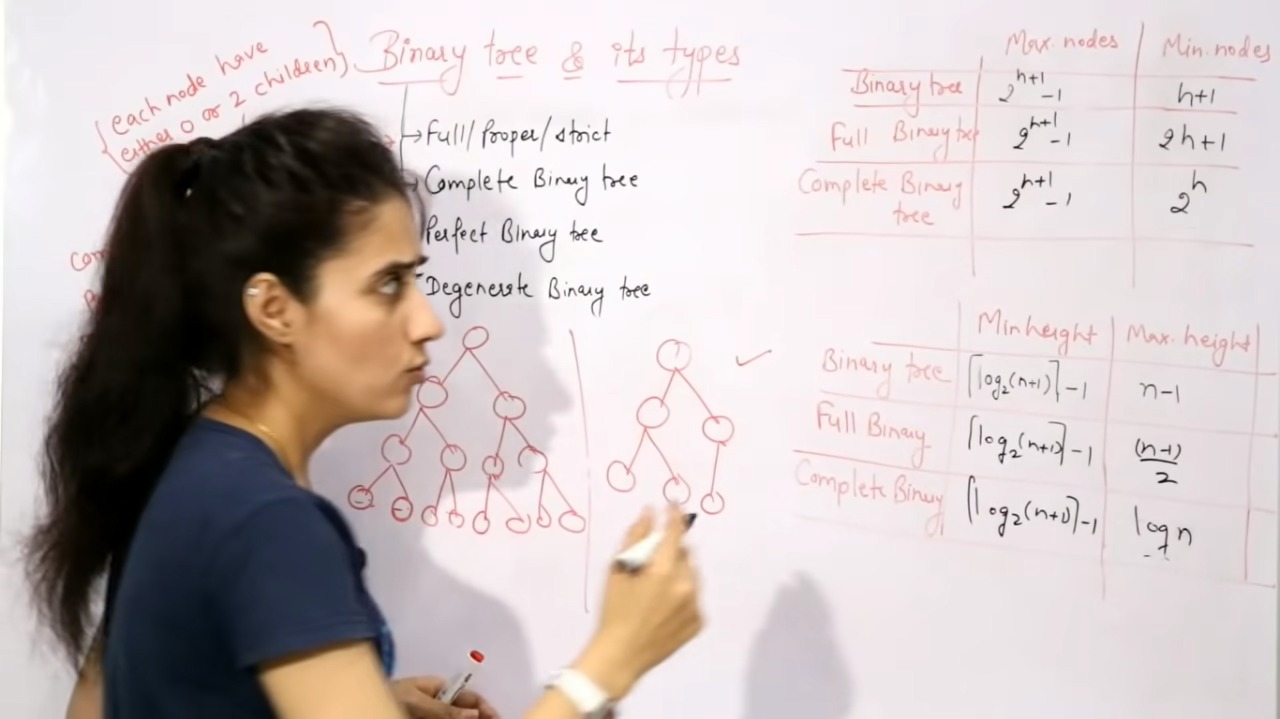 {each node have
either 0 or 2 children}
Binary tree & its types
→Full/Proper/strict
Complete Binary tree
Perfect Binary tree
Degenerate Binary tree
Max. nodes Min. nodes
Binary tree 2^{h+1} -1 h+1
Full Binary tree 2^{h+1} -1 2h+1
Complete Binary 2^{h+1} -1 2^h
tree
Min height Max. height
Binary tree ⌈log₂(n+1)⌉-1 n-1
Full Binary ⌈log₂(n+1)⌉-1 (n-1)/2
Complete Binary ⌈log₂(n+1)⌉-1 log n